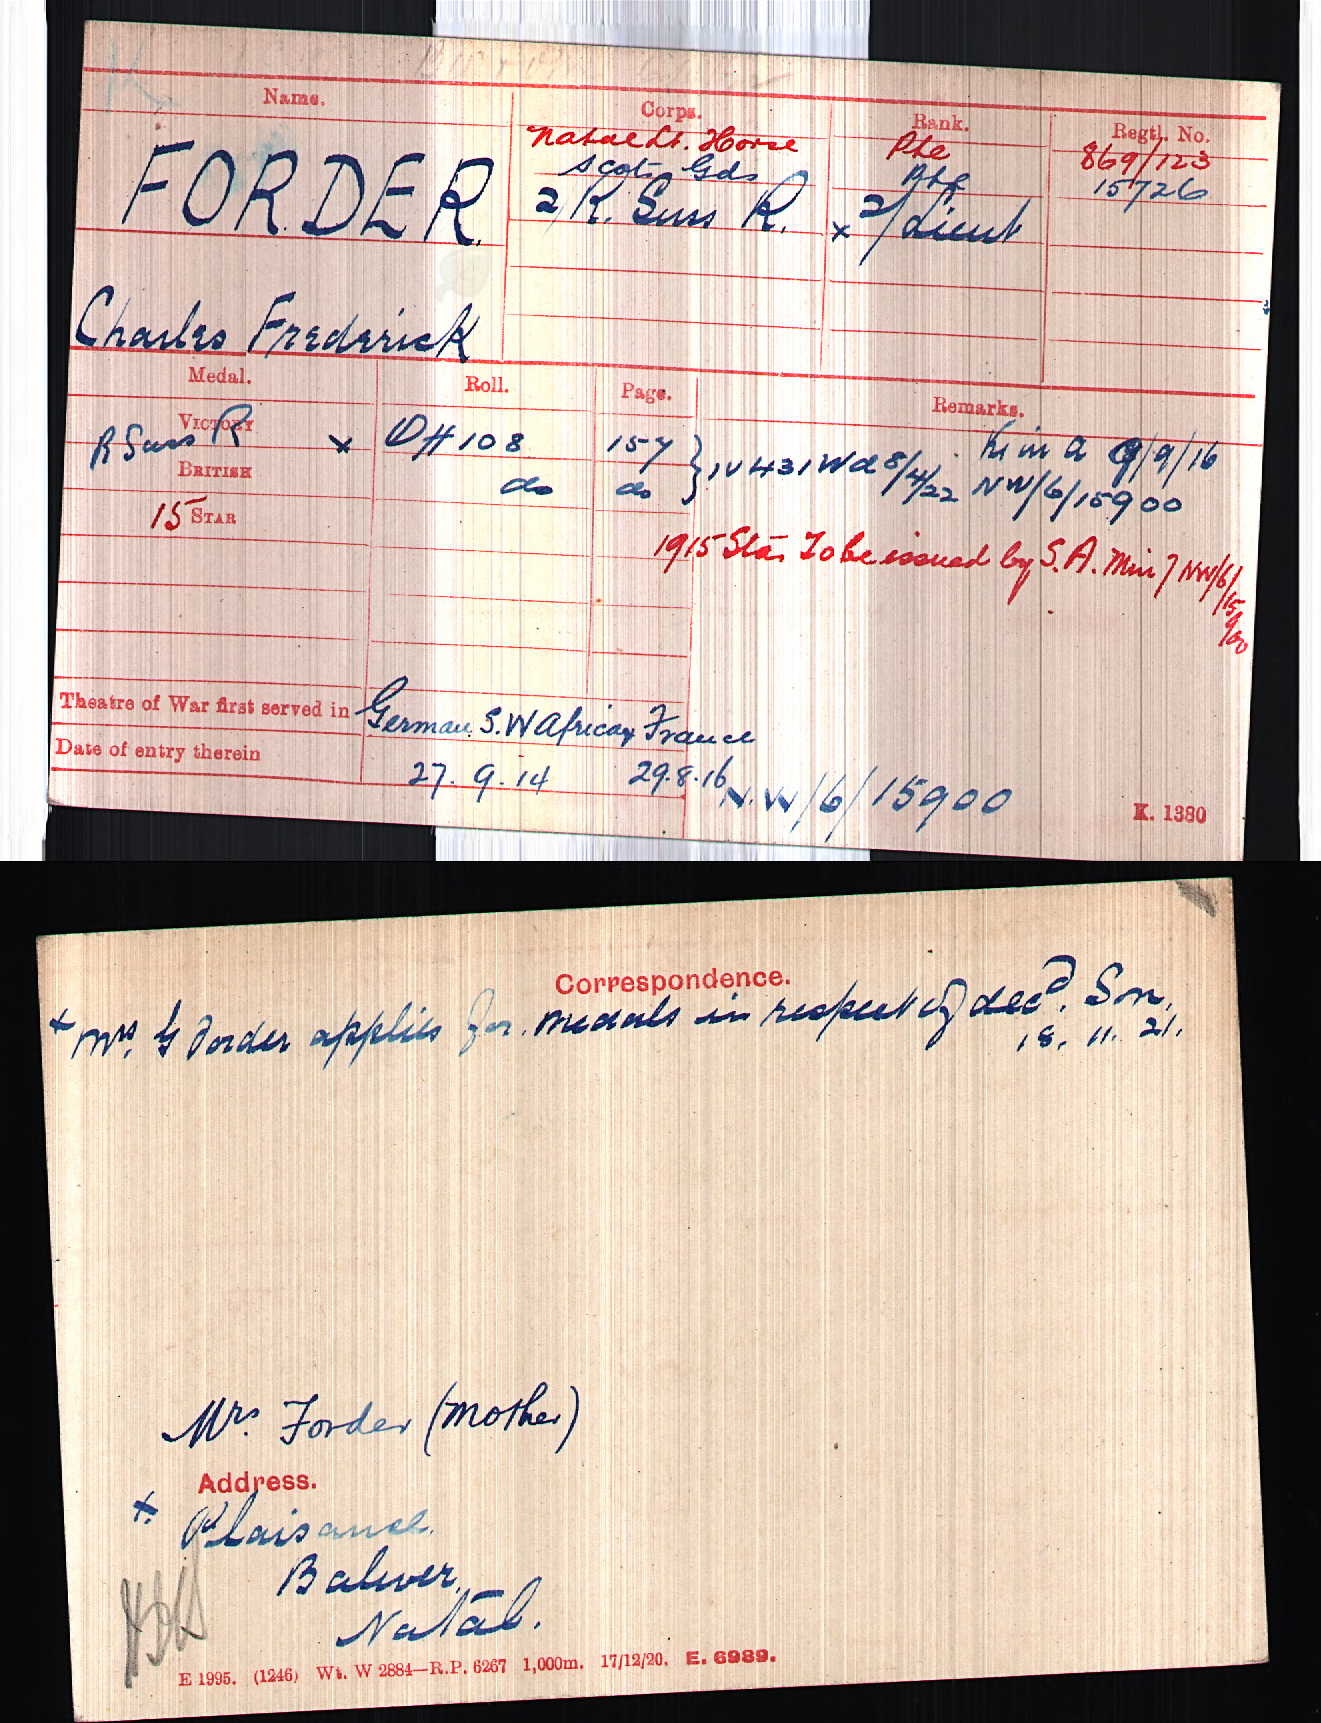 Name.
Corps.
Rank.
Regtl. No.
FORDER.
Charles Frederick
Natal Lt. Horse Pte 869/123
Scots Gds Pte 15726
2/R. Suss R. x 2/Lieut
Medal.
Roll.
Page.
Remarks.
VICTORY
R Suss R x OH 108 157 } IV 431 Wd 8/4/22 K in a 9/9/16
BRITISH do do NW/6/15900
15 STAR
1915 Star To be issued by S.A. Min) NW/6/15900
Theatre of War first served in German S.W Africa, France
Date of entry therein 27.9.14 29.8.16
N.W/6/15900
K. 1380
Correspondence.
x Mrs. G Forder applies for medals in respect of decd. Son.
18. 11. 21.
Mrs. Forder (Mother)
Address.
x Plaisance.
Bulwer,
Natal.
E 1995. (1246) Wt. W 2884—R.P. 6267 1,000m. 17/12/20. E. 6989.